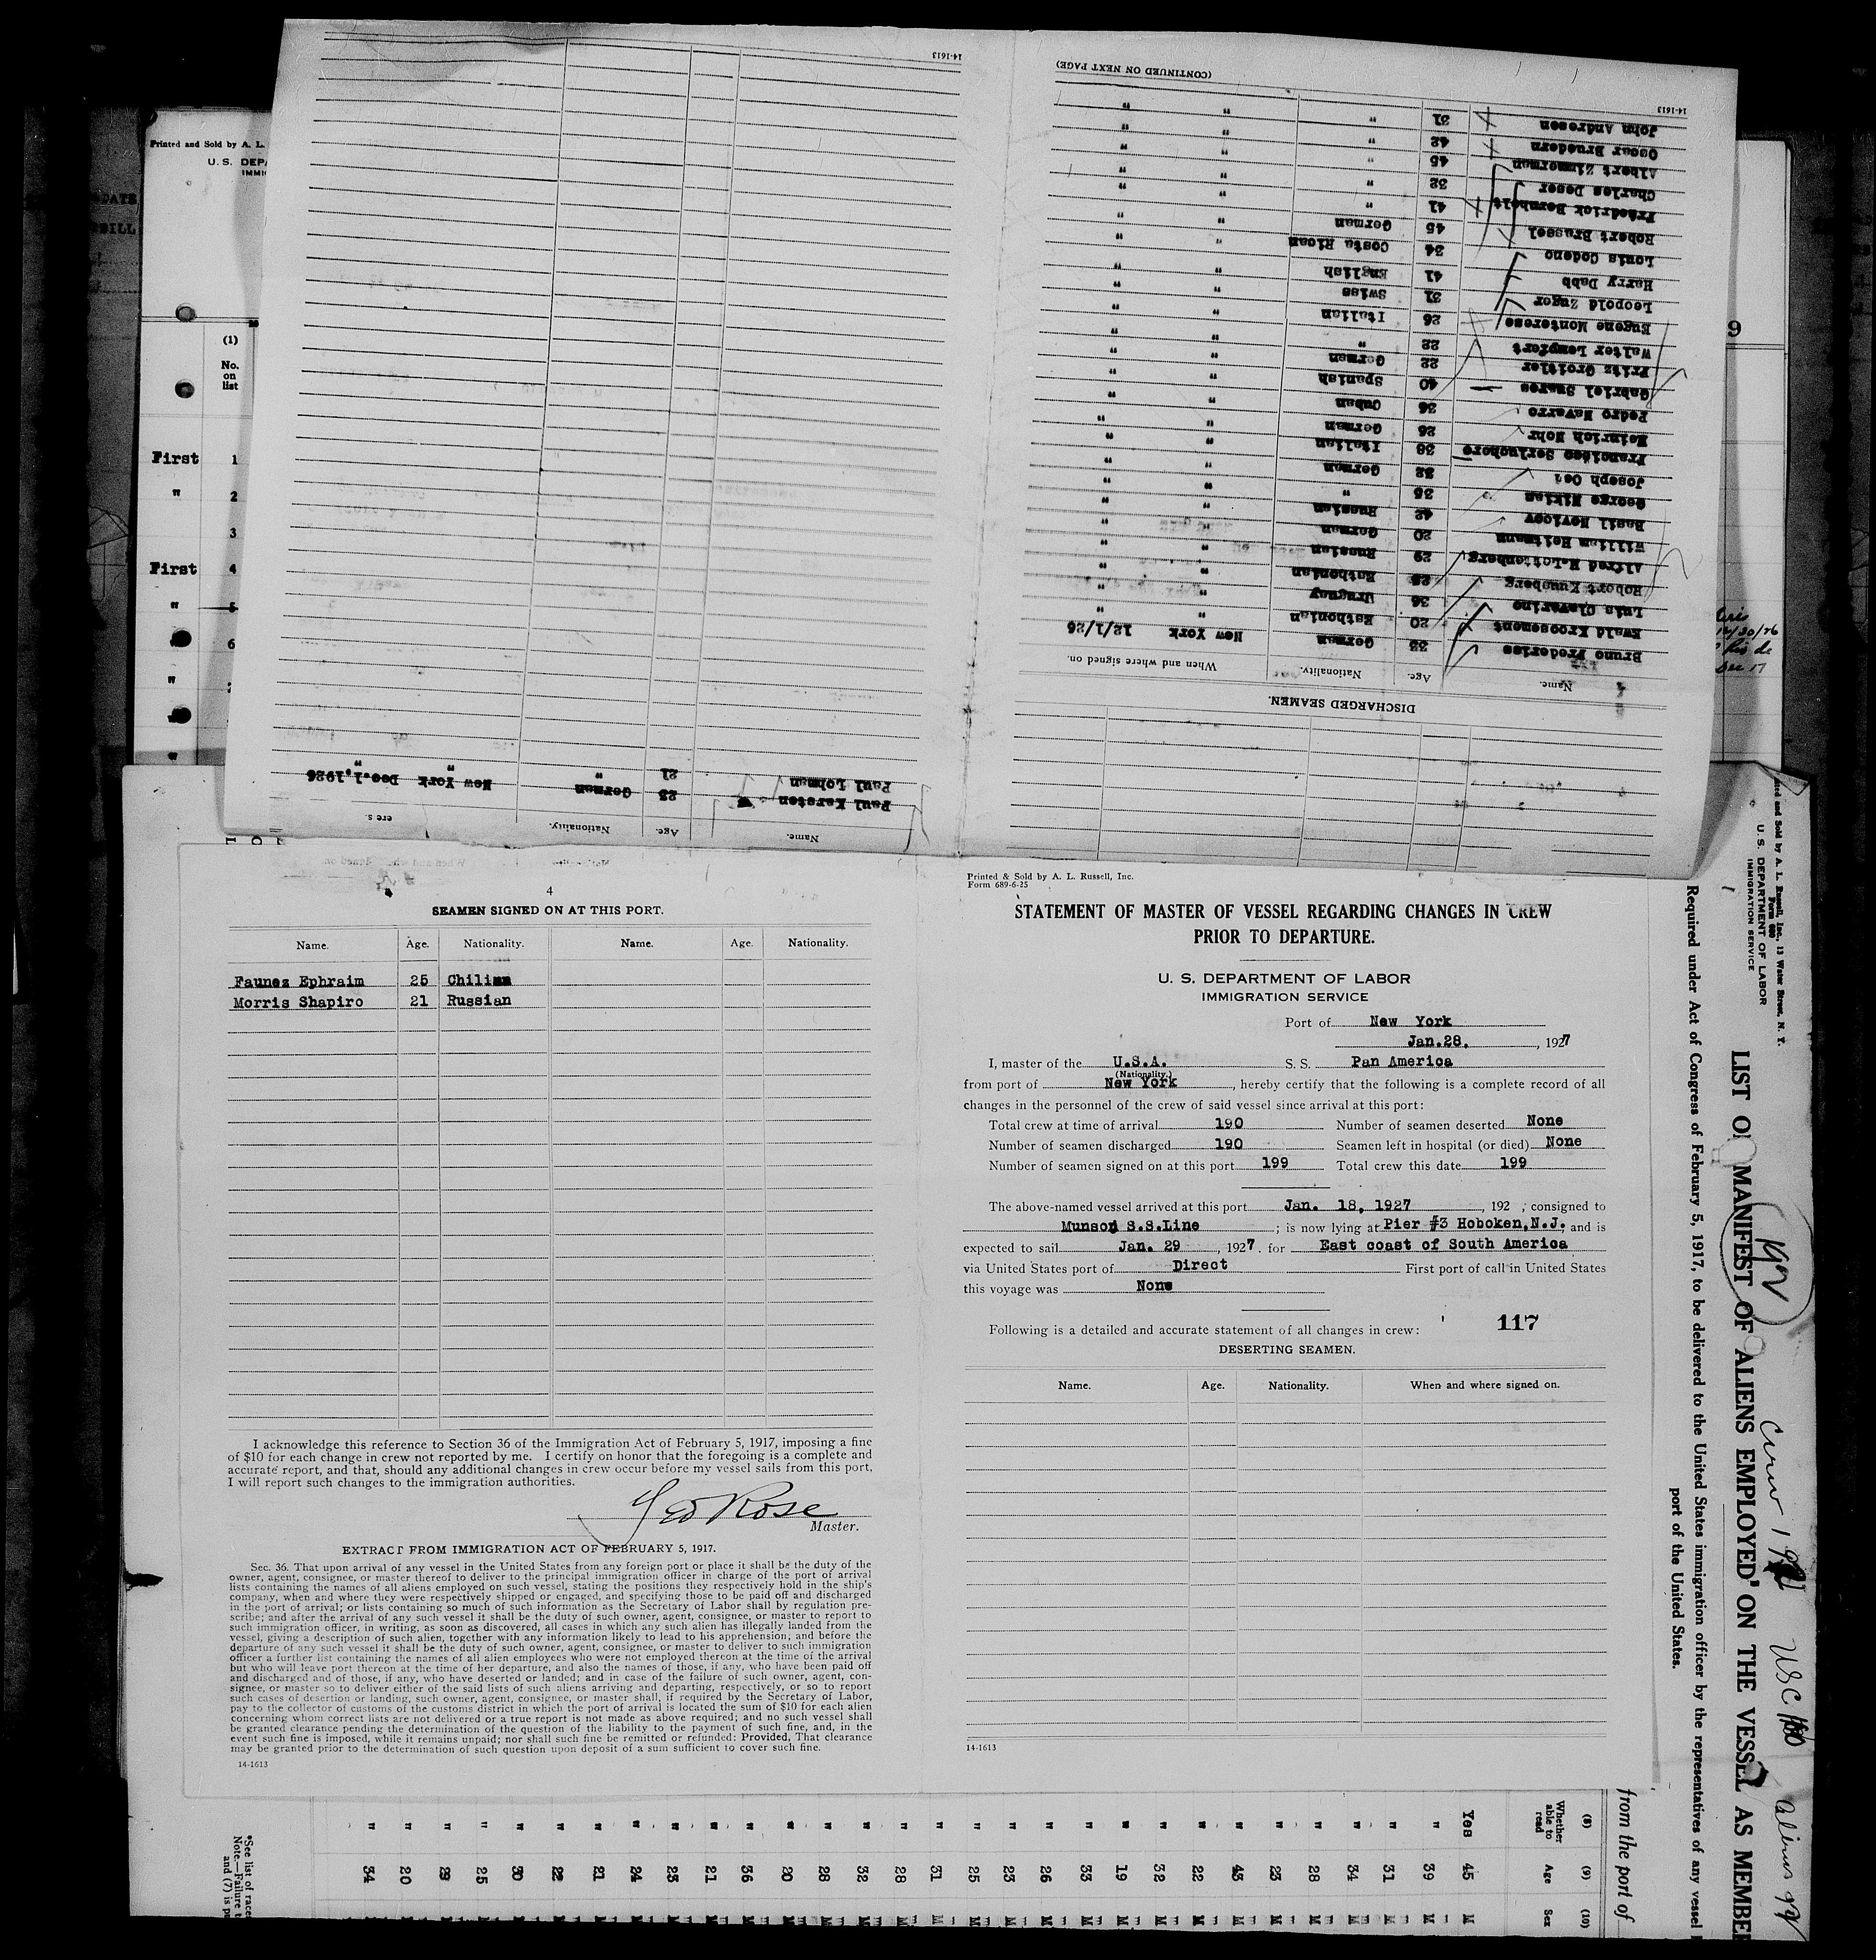 Printed and Sold by A. L.
U. S. DEPA
IMMI
(1)
No.
on
list
First 1
" 2
3
First 4
" 5
6
"
"
"
14-1613
Paul Lohman 21 " " "
Paul Karsten 23 German New York Dec.1,1926
Name. Age. Nationality.
DISCHARGED SEAMEN.
Name. Age. Nationality. When and where signed on.
Bruno Frederiss 33 German New York 12/1/26
Ewald Kroosement 20 Esthonian " "
Luis Claverino 36 Uruguay " "
Robert Kungberg Esthonian " "
29 Russian " "
William Heitmann 20 German " "
Basil Novicov 42 Russian " "
George Nikian 35 " " "
Joseph 32 German " "
38 Italian " "
Heinrich Mohr 26 German " "
Pedro Navarro 36 Cuban " "
Gabriel Suares 40 Spanish " "
Fritz Groitler 22 German " "
Walter Lempfert 22 " " "
Eugene Monterese 26 Italian " "
Leopold Zugor 31 Swiss " "
Harry Dabb 41 English " "
Louis Codeno 34 Costa Rican " "
Robert Brussel 45 German " "
Friedrick 41 " " "
Charles Deser 32 " " "
Albert Zimmerman 45 " " "
Oscar Bruedern 42 " " "
John Andresen 31 " " "
14-1613
(CONTINUED ON NEXT PAGE)
9
12/30/26
Dec 17
4
SEAMEN SIGNED ON AT THIS PORT.
Name. Age. Nationality. Name. Age. Nationality.
Faunez Ephraim 25 Chilian
Morris Shapiro 21 Russian
I acknowledge this reference to Section 36 of the Immigration Act of February 5, 1917, imposing a fine
of $10 for each change in crew not reported by me. I certify on honor that the foregoing is a complete and
accurate report, and that, should any additional changes in crew occur before my vessel sails from this port,
I will report such changes to the immigration authorities.
Geo Rose
Master.
EXTRACT FROM IMMIGRATION ACT OF FEBRUARY 5, 1917.
Sec. 36. That upon arrival of any vessel in the United States from any foreign port or place it shall be the duty of the
owner, agent, consignee, or master thereof to deliver to the principal immigration officer in charge of the port of arrival
lists containing the names of all aliens employed on such vessel, stating the positions they respectively hold in the ship's
company, when and where they were respectively shipped or engaged, and specifying those to be paid off and discharged
in the port of arrival; or lists containing so much of such information as the Secretary of Labor shall by regulation pre-
scribe; and after the arrival of any such vessel it shall be the duty of such owner, agent, consignee, or master to report to
such immigration officer, in writing, as soon as discovered, all cases in which any such alien has illegally landed from the
vessel, giving a description of such alien, together with any information likely to lead to his apprehension; and before the
departure of any such vessel it shall be the duty of such owner, agent, consignee, or master to deliver to such immigration
officer a further list containing the names of all alien employees who were not employed thereon at the time of the arrival
but who will leave port thereon at the time of her departure, and also the names of those, if any, who have been paid off
and discharged and of those, if any, who have deserted or landed; and in case of the failure of such owner, agent, con-
signee, or master so to deliver either of the said lists of such aliens arriving and departing, respectively, or so to report
such cases of desertion or landing, such owner, agent, consignee, or master shall, if required by the Secretary of Labor,
pay to the collector of customs of the customs district in which the port of arrival is located the sum of $10 for each alien
concerning whom correct lists are not delivered or a true report is not made as above required; and no such vessel shall
be granted clearance pending the determination of the question of the liability to the payment of such fine, and, in the
event such fine is imposed, while it remains unpaid; nor shall such fine be remitted or refunded: Provided, That clearance
may be granted prior to the determination of such question upon deposit of a sum sufficient to cover such fine.
14-1613
Printed & Sold by A. L. Russell, Inc.
Form 689-6-25
STATEMENT OF MASTER OF VESSEL REGARDING CHANGES IN CREW
PRIOR TO DEPARTURE.
U. S. DEPARTMENT OF LABOR
IMMIGRATION SERVICE
Port of New York
Jan.28, , 1927
I, master of the U.S.A. S. S. Pan America
(Nationality.)
from port of New York , hereby certify that the following is a complete record of all
changes in the personnel of the crew of said vessel since arrival at this port:
Total crew at time of arrival 190 Number of seamen deserted None
Number of seamen discharged 190 Seamen left in hospital (or died) None
Number of seamen signed on at this port 199 Total crew this date 199
The above-named vessel arrived at this port Jan. 18, 1927 , 192 ; consigned to
Munson S.S.Line ; is now lying at Pier #3 Hoboken,N.J. and is
expected to sail Jan. 29 , 1927. for East coast of South America
via United States port of Direct First port of call in United States
this voyage was None
117
Following is a detailed and accurate statement of all changes in crew:
DESERTING SEAMEN.
Name. Age. Nationality. When and where signed on.
14-1613
ted and Sold by A. L. Russell, Inc., 13 Water Street, N. Y.
Form 680
U. S. DEPARTMENT OF LABOR
IMMIGRATION SERVICE
LIST OF MANIFEST OF ALIENS EMPLOYED ON THE VESSEL AS MEMBE
Required under Act of Congress of February 5, 1917, to be delivered to the United States immigration officer by the representatives of any vessel
port of the United States.
190
Crew
USC
aliens 90
from the port of
(8) (9) (10)
Whether able to read Age Sex
Yes 45 M
" 39 M
" 31 M
" 34 M
" 28 M
" 23 M
" 43 M
" 22 M
" 32 M
" 19 M
" 33 M
" 26 M
" 23 M
" 25 M
" 31 M
" 28 M
" 32 M
" 28 M
" 20 M
" 36 M
" 21 M
" 23 M
" 24 M
" 21 M
" 22 M
" 30 M
" 25 M
" 29 M
" 20 M
" 34 M
*See list of races
Note.—Failure t
and (7) is pu